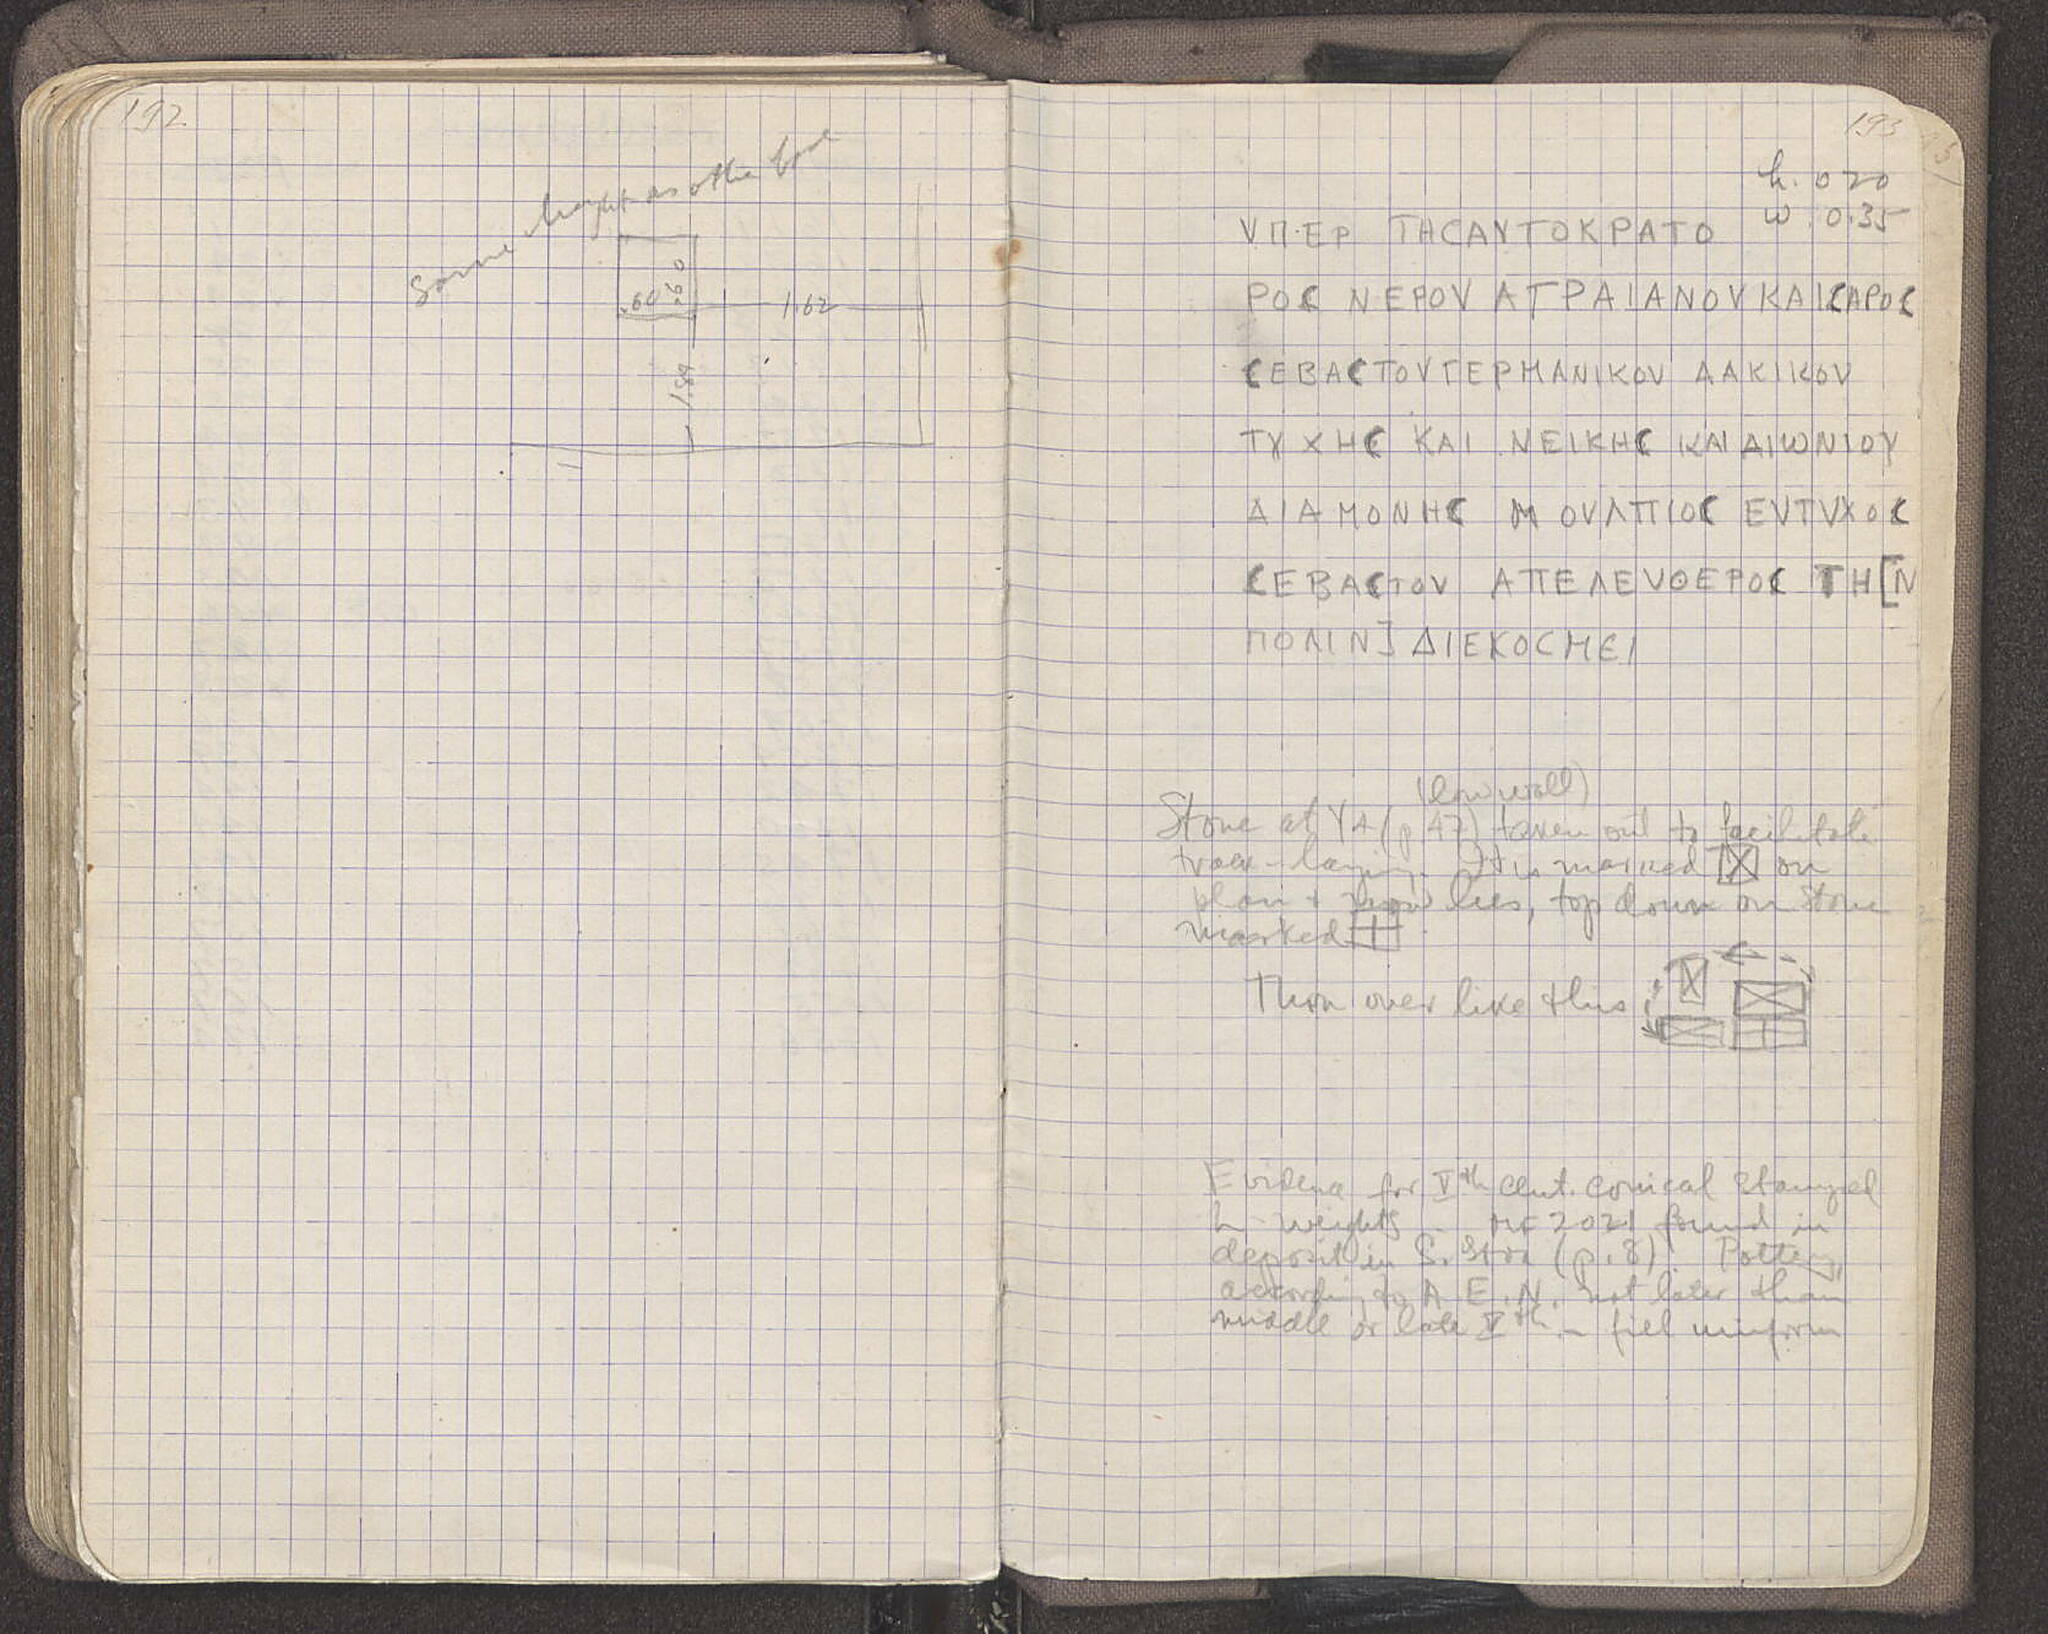 192
Same height as other base
.60
0.60
1.62
1.54
193
h. 0 20
w. 0.35
ΥΠΕΡ ΤΗϹΑΥΤΟΚΡΑΤΟ
ΡΟϹ ΝΕΡΟΥ ΑΤΡΑΙΑΝΟΥΚΑΙϹΑΡΟϹ
ϹΕΒΑϹΤΟΥΓΕΡΜΑΝΙΚΟΥ ΔΑΚΙΚΟΥ
ΤΥΧΗϹ ΚΑΙ ΝΕΙΚΗϹ ΚΑΙ ΔΙΩΝΙΟΥ
ΔΙΑΜΟΝΗϹ Μ ΟΥΛΠΙΟϹ ΕΥΤΥΧΟϹ
ϹΕΒΑϹΤΟΥ ΑΠΕΛΕΥΘΕΡΟϹ ΤΗ[Ν
ΠΟΛΙΝ] ΔΙΕΚΟϹΜΕΙ
(low wall)
Stone at Y4 (p. 47) taken out to facilitate
track-laying. It is marked on
plan + now lies, top down on stone
marked
Turn over like this
Evidence for Vth cent. conical stamped
L-weights - MF 2021 found in
deposit in S. Stoa (p. 8). Pottery,
according to A. E. N. not later than
middle or late Vth - fill uniform